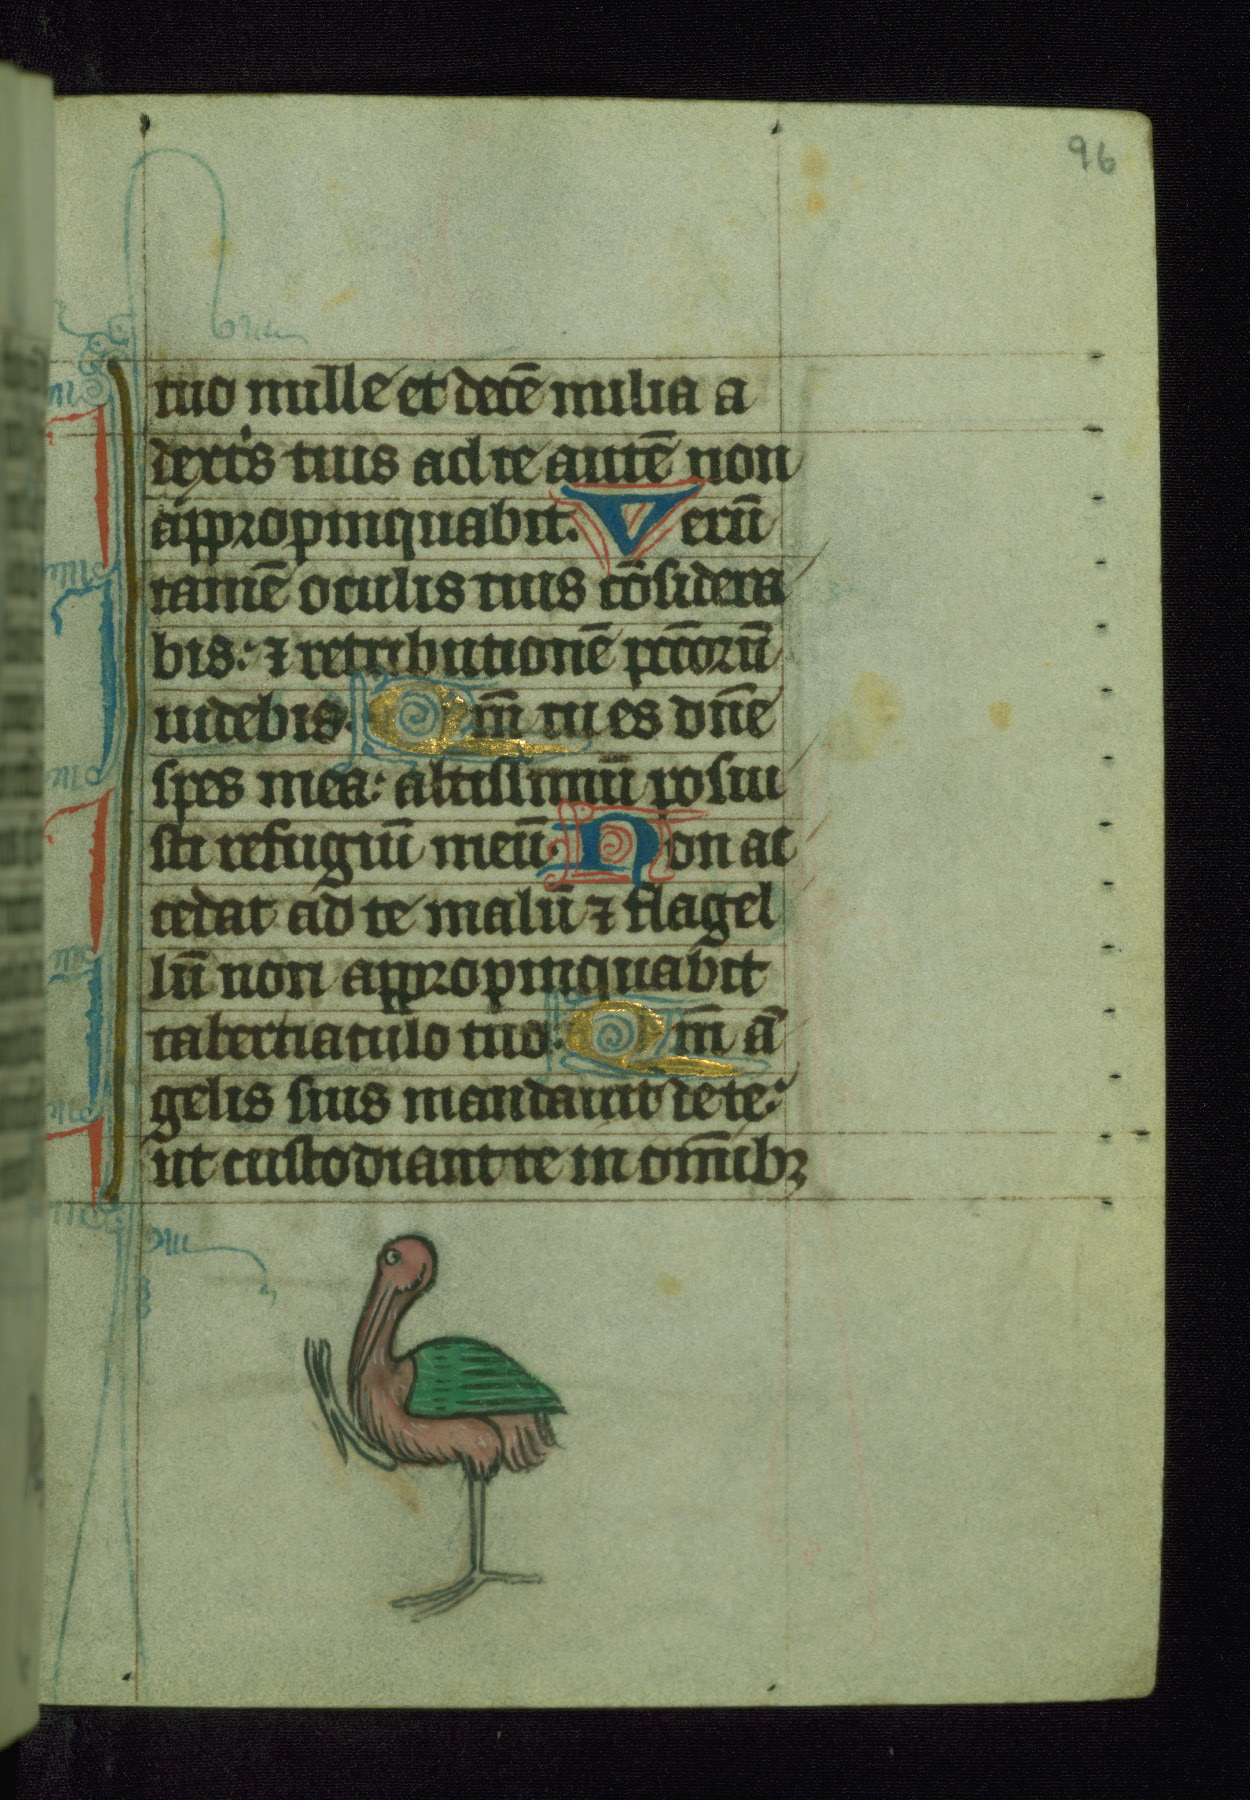 96
tuo mille et decē milia a
dextˢis tuis ad te autē non
appropinquabit. Verū
tamē oculis tuis cōsidera
bis: ⁊ retributionē pctōrū
uidebis. Qm̄ tu es dn̄e
spes mea: altissimū posui
sti refugiū meū. Non ac
cedat ad te malū ⁊ flagel
lū non appropinquabit
tabernaculo tuo: Qm̄ ā
gelis suis mandauit de te:
ut custodiant te in om̄ibꝫ